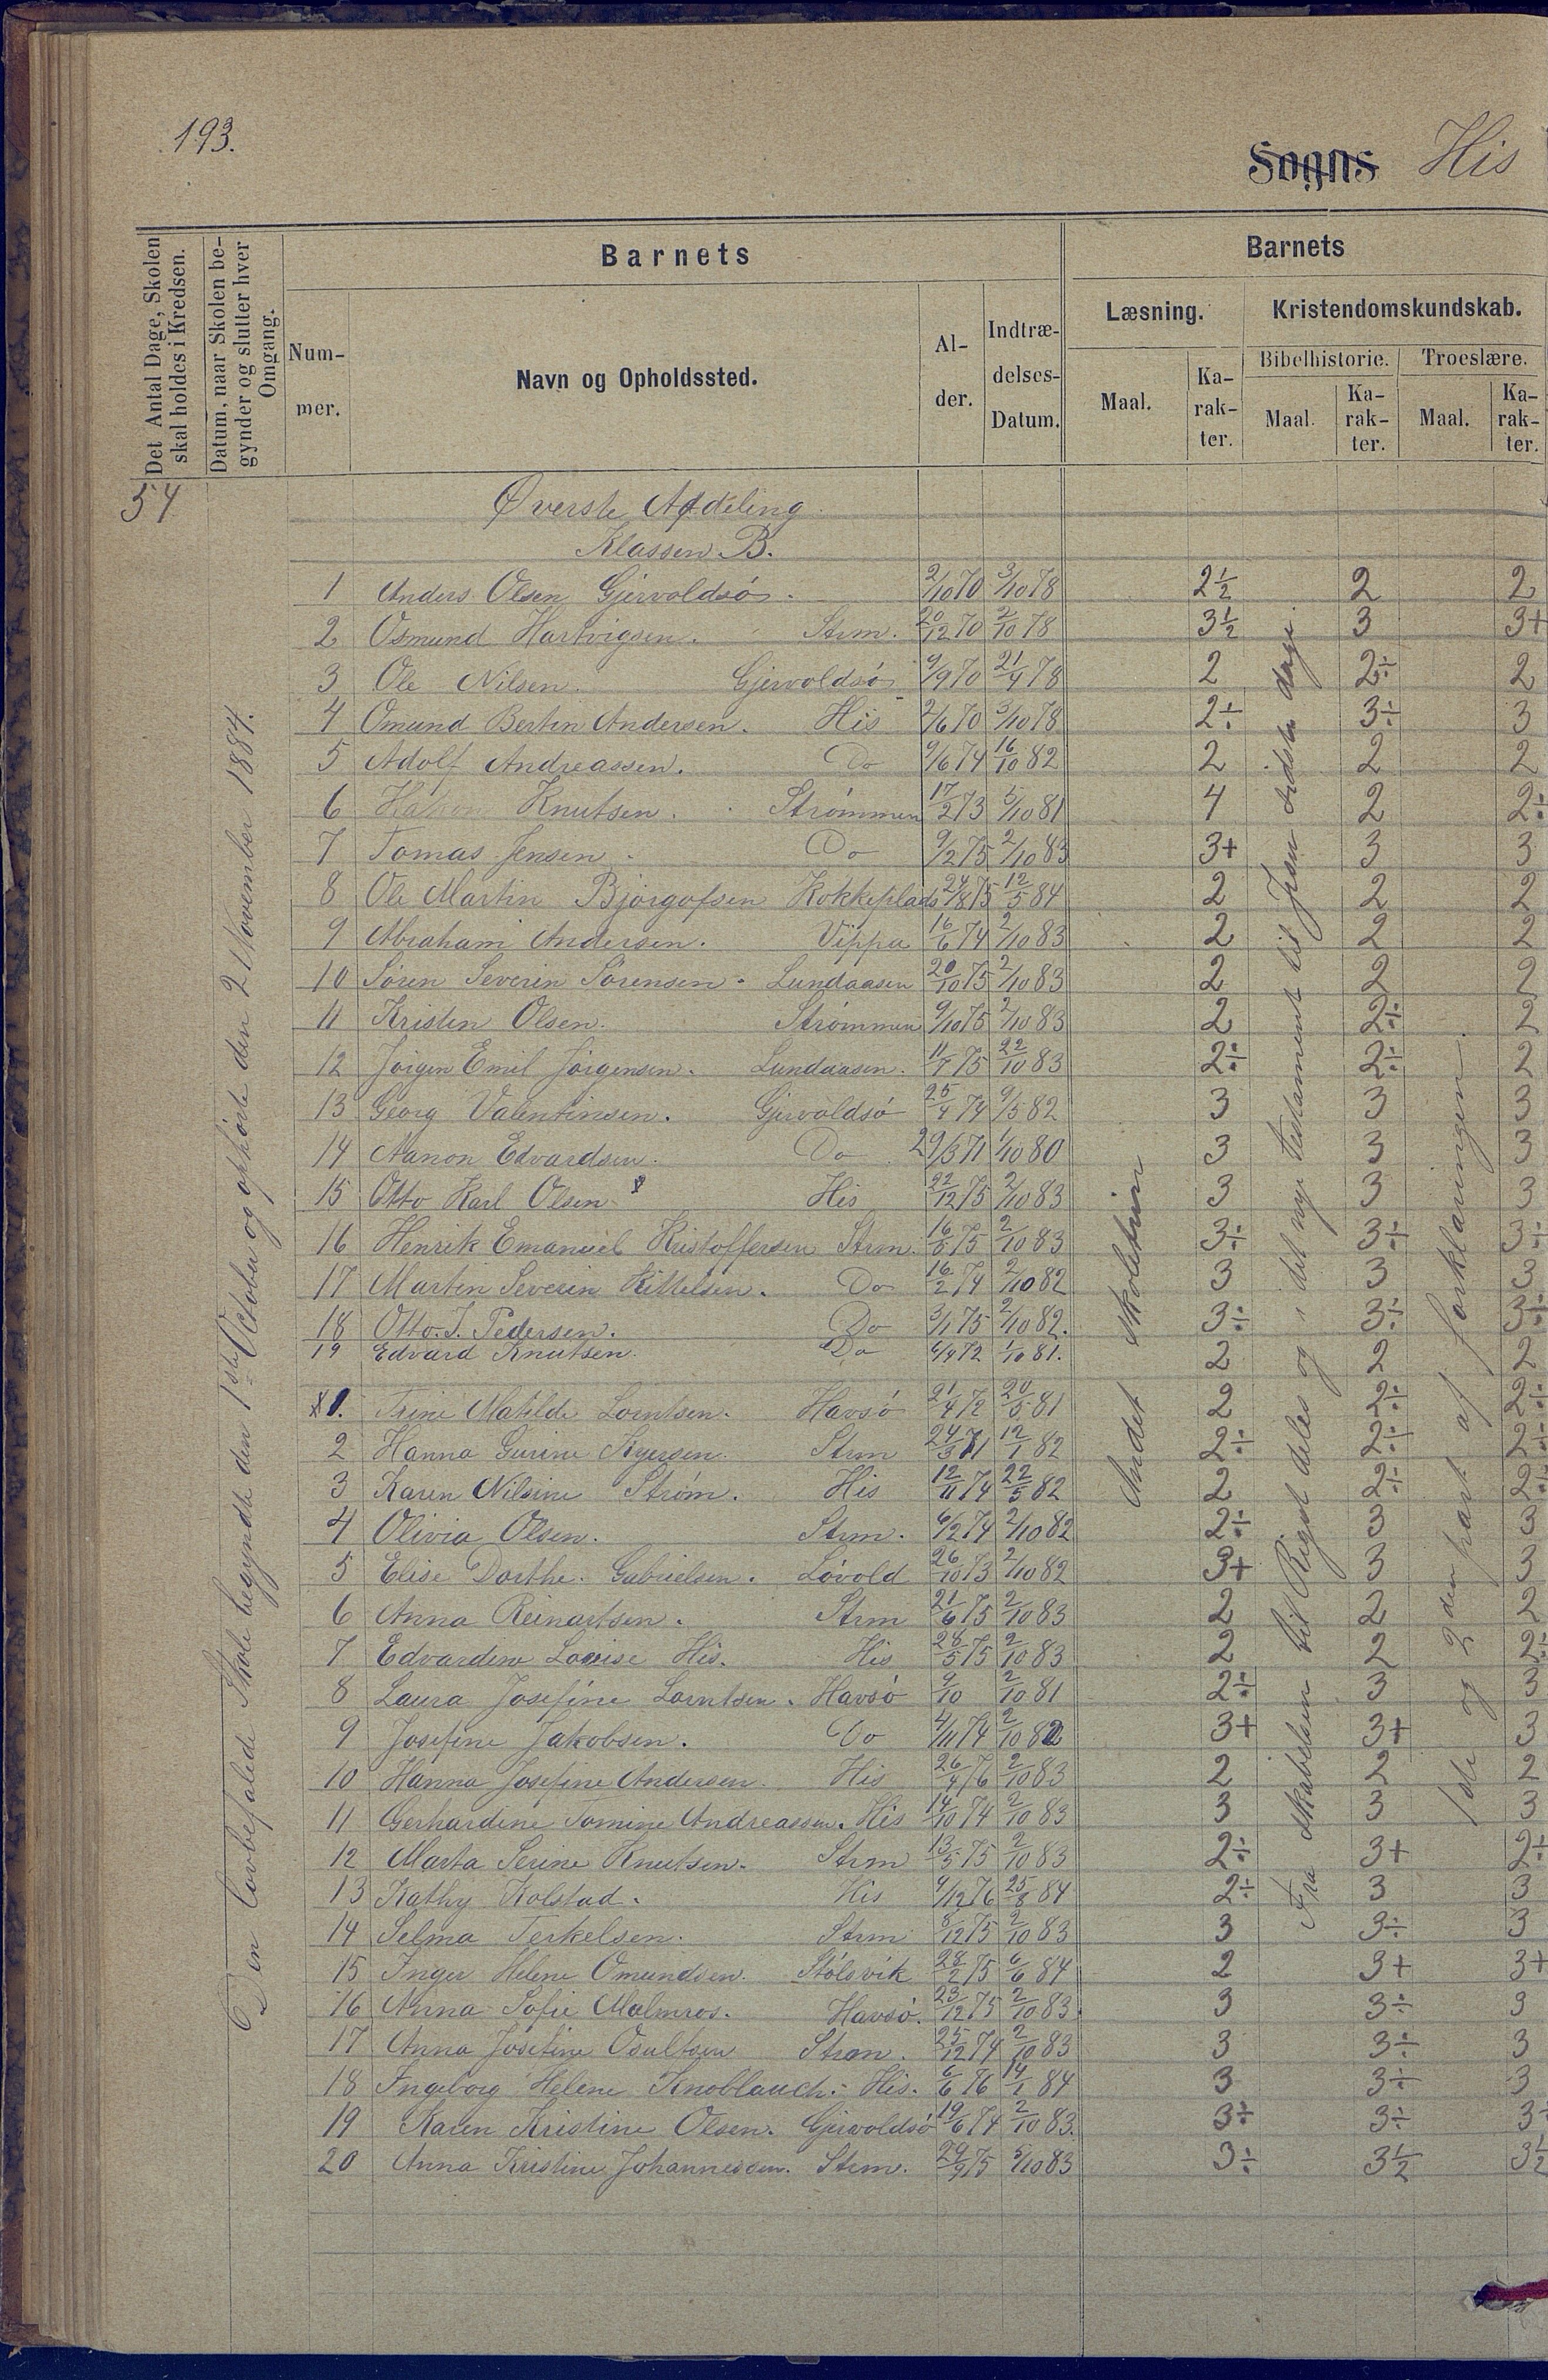 193.
Sogns His
Det Antal Dage, Skolen skal holdes i Kredsen.
Datum, naar Skolen begynder og slutter hver Omgang.
Barnets
Barnets
Nummer.
Navn og Opholdssted.
Alder.
Indtrædelses-Datum.
Læsning.
Kristendomskundskab.
Bibelhistorie.
Troeslære.
Maal.
Karakter.
Maal.
Karakter.
Maal.
Karakter.
54
Øverste Afdeling
Klassen B.
1 Anders Olsen Gjervoldsø. 2/10 70 3/10 78 2½ 2 2
2 Osmund Hartvigsen. Strm. 20/12 70 2/10 78 3½ 3 3+
3 Ole Nilsen. Gjervoldsø 9/9 70 21/4 78 2 2÷ 2
4 Omund Bertin Andersen. His 2/6 70 3/10 78 2÷ 3÷ 3
5 Adolf Andreassen. Do 9/6 74 16/10 82 2 2 2
6 Håkon Knutsen. Strømmen 17/2 73 5/10 81 4 2 2÷
7 Tomas Jensen. Do 9/2 75 2/10 83 3+ 3 3
8 Ole Martin Bjørgofsen Kokkeplads 24/8 75 12/5 84 2 2 2
9 Abraham Andersen. Vippa 16/6 74 2/10 83 2 2 2
10 Søren Severin Sørensen. Lundaasen 20/10 75 2/10 83 2 2 2
11 Kristen Olsen. Strømmen 9/10 75 2/10 83 2 2÷ 2
12 Jørgen Emil Jørgensen. Lundaasen. 11/7 75 22/10 83 2÷ 2÷ 2
13 Georg Valentinsen. Gjervoldsø 25/4 74 9/5 82 3 3 3
14 Aanon Edvardsen. Do 29/3 71 1/10 80 3 3 3
15 Otto Karl Olsen His 22/12 75 2/10 83 3 3 3
16 Henrik Emanuel Kristoffersen Strm. 16/8 75 2/10 83 3÷ 3÷ 3÷
17 Martin Severin Kittelsen. Do 16/2 74 2/10 82 3 3 3
18 Otto. J. Pedersen. Do 3/1 75 2/10 82. 3÷ 3÷ 3÷
19 Edvard Knutsen. Do 6/9 72 1/10 81. 2 2 2
1. Trine Matilde Lorntsen. Havsø 21/4 72 20/5 81 2 2÷ 2÷
2 Hanna Gurine Aspersen. Strm 24/3 71 12/1 82 2÷ 2÷ 2÷
3 Karen Nilsine Strøm. His 12/11 74 22/5 82 2 2÷ 2÷
4 Olivia Olsen. Strm. 6/2 74 2/10 82 2÷ 3 3
5 Elise Dorthe. Gabrielsen. Løvold 26/10 73 2/10 82 3+ 3 3
6 Anna Reinartsen. Strm 21/6 75 2/10 83 2 2 2
7 Edvardine Lovise His. His 28/5 75 2/10 83 2 2 2÷
8 Laura Josefine Lorntsen. Havsø 9/10 2/10 81 2÷ 3 3
9 Josefine Jakobsen. Do 4/11 74 2/10 82 3+ 3+ 3
10 Hanna Josefine Andersen. His 26/4 76 2/10 83 2 2 2
11 Gerhardine Tomine Andreassen. His 14/10 74 2/10 83 3 3 3
12 Marta Serine Knutsen. Strm 13/5 75 2/10 83 2÷ 3+ 2÷
13 Kathy Kolstad. His 4/12 76 25/8 84 2÷ 3 3
14 Selma Terkelsen. Strm 8/12 75 2/10 83 3 3÷ 3
15 Inger Helene Omundsen. Stølsvik 28/2 75 6/6 84 2 3+ 3+
16 Anna Sofie Malmros. Havsø. 23/12 75 2/10 83. 3 3÷ 3
17 Anna Josefine Osultsen Strm. 25/12 74 2/10 83 3 3÷ 3
18 Ingeborg Helene Knoblauch. His. 6/6 76 14/1 84 3 3÷ 3
19 Karen Kristine Olsen. Gjervoldsø 19/6 74 2/10 83. 3÷ 3÷ 3÷
20 Anna Kristine Johannessen. Strm. 29/9 75 5/10 83 3÷ 3½ 3½
Den lovbefalede Skole begyndte den 1ste October og ophørte den 2 November 1884.
Andet Skoletrin
Fra Skabelsen til Riget deles og i det nye testament til Jesu sidste dage
1ste og 2den part af forklaringen.